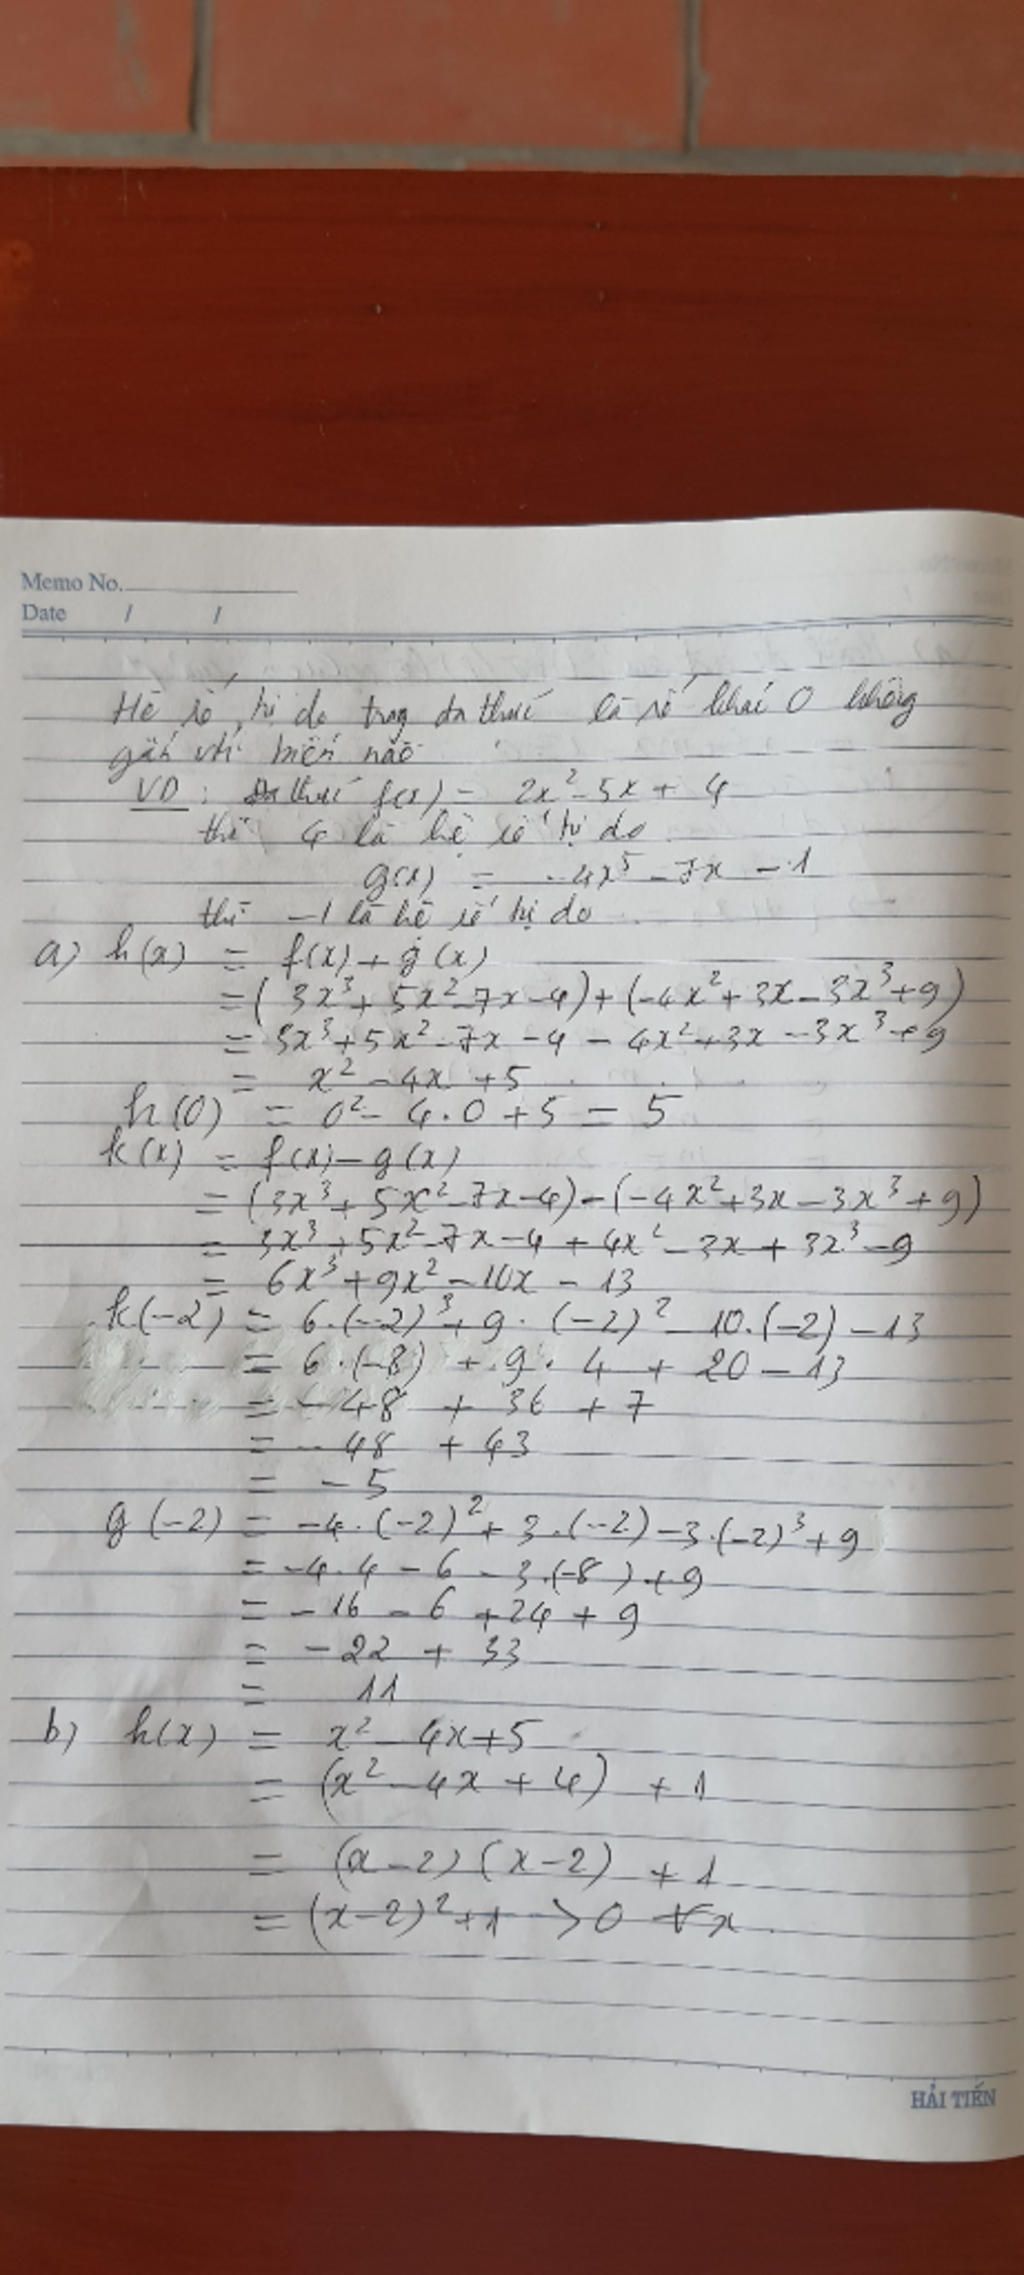 Memo No.
Date / /
Hệ số tự do trong đa thức là số khác 0 không
gắn với biến nào
VD: Đa thức f(x) = 2x² - 5x + 4
thì 4 là hệ số tự do
g(x) = -4x⁵ - 7x - 1
thì -1 là hệ số tự do
a) h(x) = f(x) + g(x)
= (3x³ + 5x² - 7x - 4) + (-4x² + 3x - 3x³ + 9)
= 3x³ + 5x² - 7x - 4 - 4x² + 3x - 3x³ + 9
= x² - 4x + 5
h(0) = 0² - 4.0 + 5 = 5
k(x) = f(x) - g(x)
= (3x³ + 5x² - 7x - 4) - (-4x² + 3x - 3x³ + 9)
= 3x³ + 5x² - 7x - 4 + 4x² - 3x + 3x³ - 9
= 6x³ + 9x² - 10x - 13
k(-2) = 6.(-2)³ + 9.(-2)² - 10.(-2) - 13
= 6.(-8) + 9.4 + 20 - 13
= -48 + 36 + 7
= -48 + 43
= -5
g(-2) = -4.(-2)² + 3.(-2) - 3.(-2)³ + 9
= -4.4 - 6 - 3.(-8) + 9
= -16 - 6 + 24 + 9
= -22 + 33
= 11
b) h(x) = x² - 4x + 5
= (x² - 4x + 4) + 1
= (x - 2)(x - 2) + 1
= (x - 2)² + 1 > 0 ∀x
HẢI TIẾN